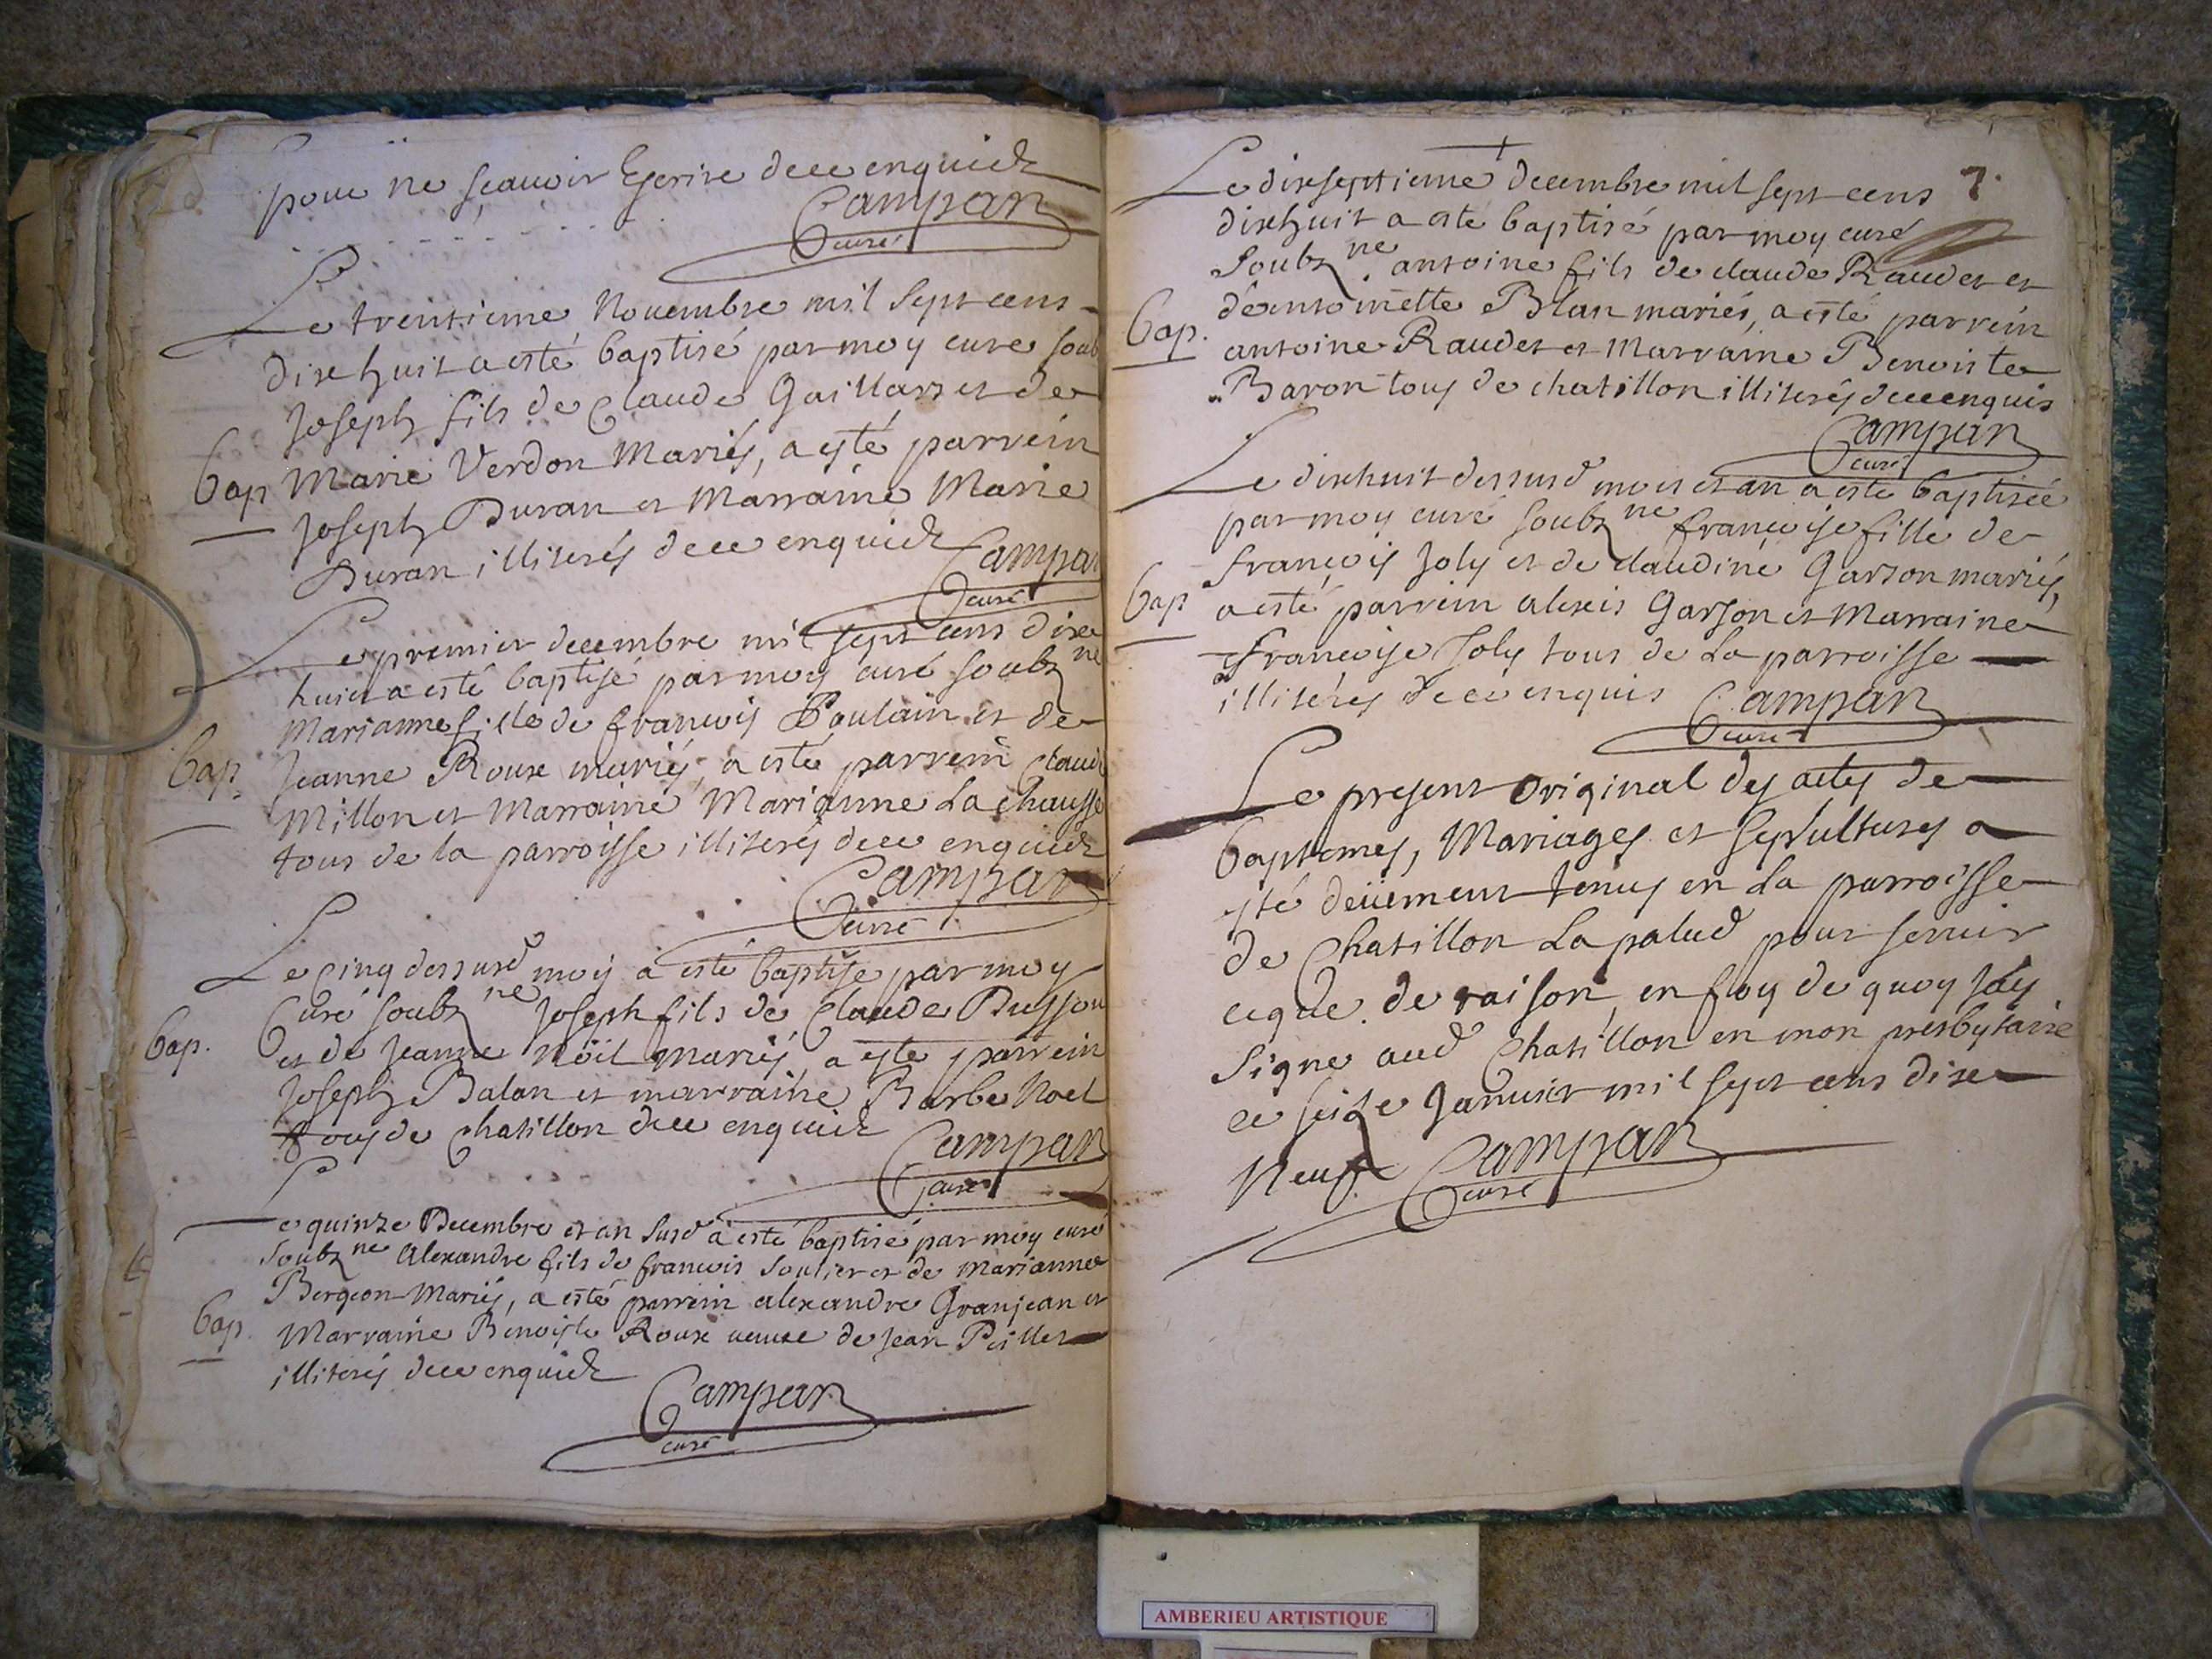 pour ne scauoir Escrire dece enquich
Campan
curé
Le trentieme Nouembre mil Sept cens
dixhuit a esté baptisé par moy curé soub
Joseph fils de Claude Gaillard et de
Bap Marie Verdon Mariés, a esté parrein
Joseph Duran et Marraine Marie
Duran illiterés dece enquich
Campan
curé
Le premier decembre mil sept cens dixe
huict a esté baptisé par moy curé soubz ne
Marianne fille de francois Poulain et de
Bap Jeanne Roux mariés, a esté parrein Claude
Millon et Marraine Marianne La chausse
tous de la parroisse illiterés dece enquich
Campan
curé
Le Cinq dessusd moy a esté baptise par moy
Curé soubz ne Joseph fils de Claude Busson
Bap. et de Jeanne Noël mariés a esté parrein
Joseph Balan et marraine Barbe Noel
tous de Chatillon dece enquich
Campan
curé
Le quinze Decembre et an susd a esté baptisé par moy curé
soubz ne Alexandre fils de francois Soulier et de Marianne
Bergeon Mariés, a esté parrein alexandre Granjean et
Bap. Marraine Benoiste Roux veuue de Jean Peillet
illiterés dece enquich
Campan
curé
Le dixseptieme decembre mil sept cens 7.
dixhuit a esté baptisé par moy curé
soubz ne antoine fils de claude Raudet et
d'antoinette Blan mariés, a esté parrein
Bap. antoine Raudet et Marraine Benoiste
Baron tous de chatillon illiterés dece enquis
Campan
curé
Le dixhuit dessusd mois et an a esté baptisée
par moy curé soubz ne francoise fille de
francois Joly et de claudine Garson mariés,
Bap a esté parrein alexis Garson et Marraine
francoise Joly tous de La parroisse
illiterés dece enquis
Campan
curé
Le present Original des actes de
baptemes, Mariages et Sepultures a
esté deüement tenus en La parroisse
de Chatillon La palud pour seruir
ce que de raison, en foy de quoy J'ay
Signe aud Chatillon en mon presbytaire
ce seize Januier mil sept cens dixe
Neuf
Campan
curé
AMBERIEU ARTISTIQUE